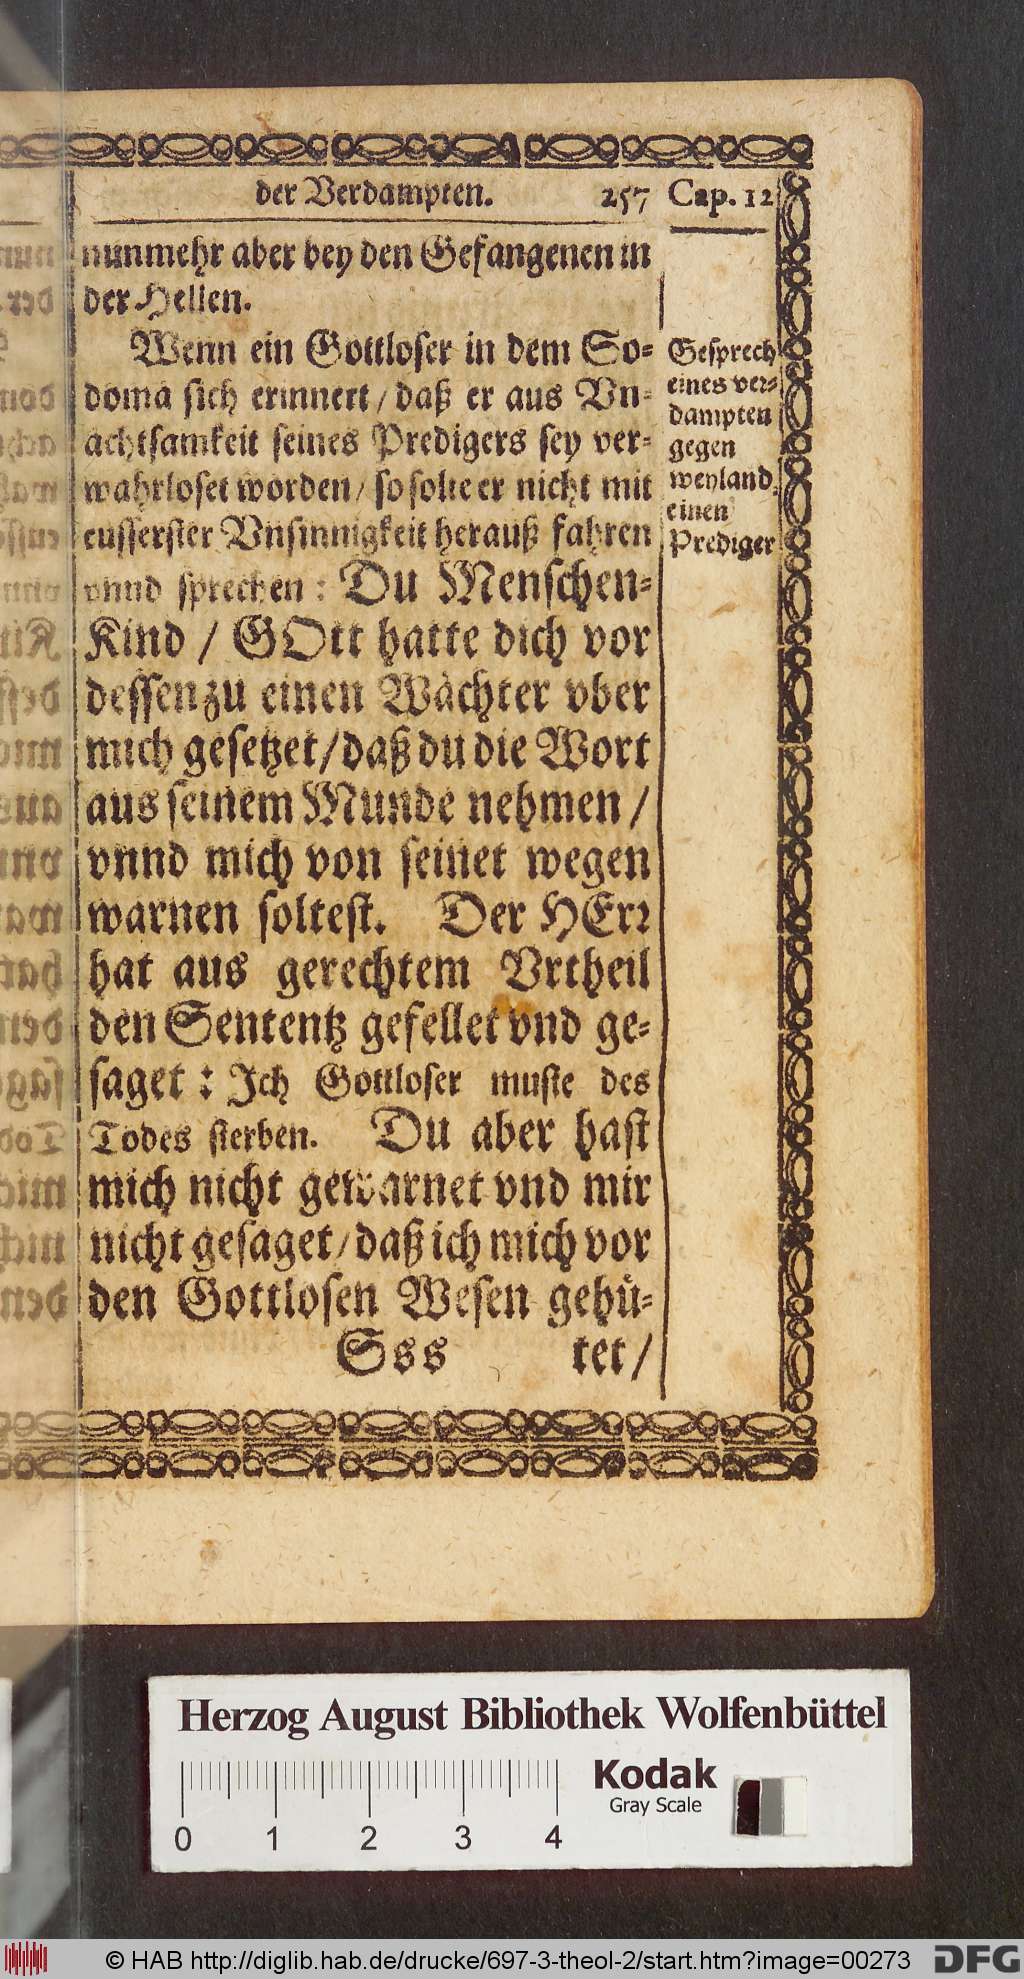 der Verdampten. 257 Cap. 12
nunmehr aber bey den Gefangenen in
der Hellen.
Wenn ein Gottloser in dem So⸗
doma sich erinnert / daß er aus Vn⸗
achtsamkeit seines Predigers sey ver⸗
wahrloset worden / so solte er nicht mit
eusserster Vnsinnigkeit herauß fahren
vnnd sprechen : Du Menschen⸗
Kind / GOtt hatte dich vor
dessen zu einen Wächter vber
mich gesetzet / daß du die Wort
aus seinem Munde nehmen /
vnnd mich von seinet wegen
warnen soltest. Der HErr
hat aus gerechtem Vrtheil
den Sententz gefellet vnd ge⸗
saget : Jch Gottloser muste des
Todes sterben. Du aber hast
mich nicht gewarnet vnd mir
nicht gesaget / daß ich mich vor
den Gottlosen Wesen gehü⸗
Sss tet /
Gesprech
eines ver⸗
dampten
gegen
weyland
einen
Prediger
Herzog August Bibliothek Wolfenbüttel
Kodak
Gray Scale
0 1 2 3 4
© HAB http://diglib.hab.de/drucke/697-3-theol-2/start.htm?image=00273
DFG